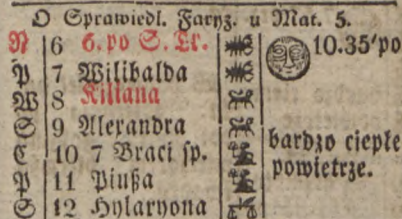 O Sprawiedl. Faryz. u Mat. 5.
N 6 6. po S. Tr. 10.35'po
P 7 Wilibalda
W 8 Kiliana
S 9 Alexandra bardzo ciepłe
C 10 7 Braci sp. powietrze.
P 11 Piusa
S 12 Hylaryona